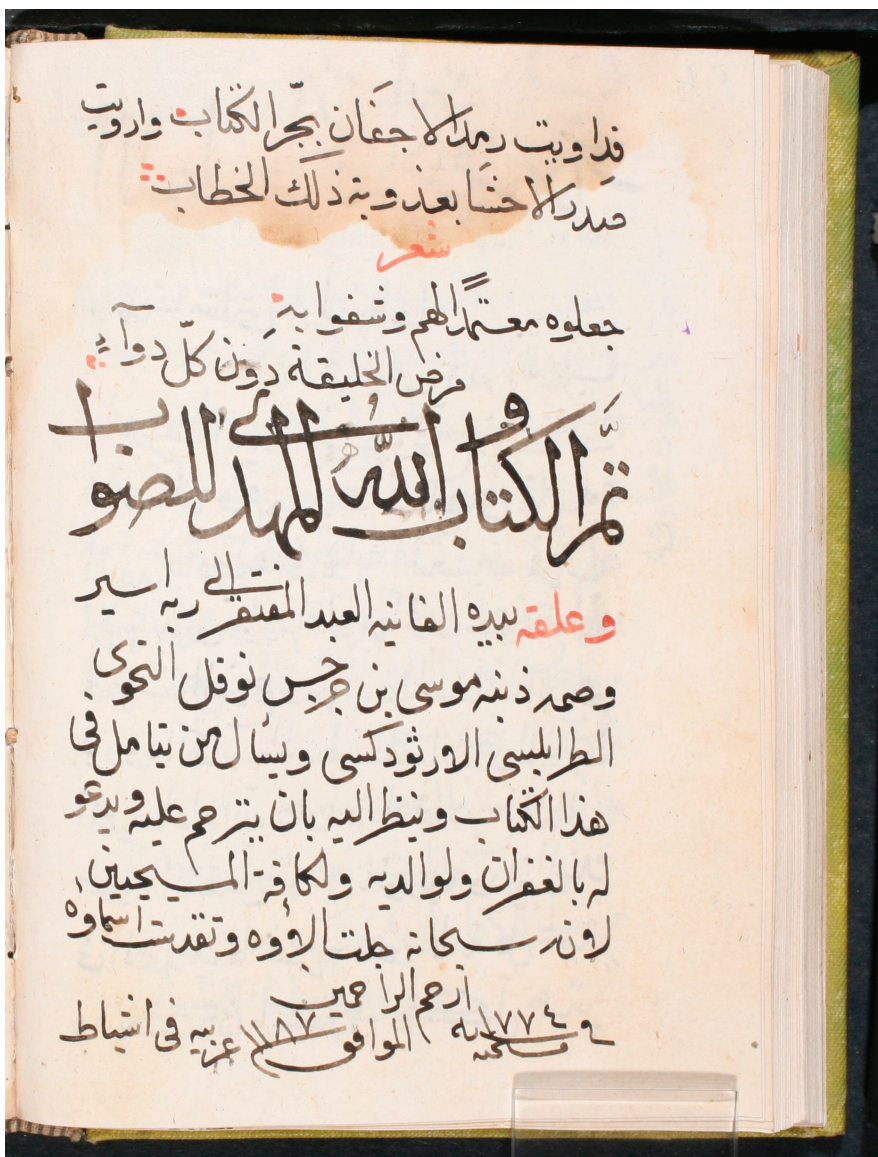 فداويت رمد الاجفان بحبر الكتاب وارويت
صدر الاحشا بعذوبة ذلك الخطاب
شعر
جعلوه معتمدًا لهم وشفوا به
مرض الخليقة دون كلّ دوآءٍ
تمَّ الكتاب والله المهدي للصواب
وعلقه بيده الفانيه العبد المفتقر الى ربه اسير
وصمة ذنبه موسى بن جرجس نوفل النحوى
الطرابلسى الاورثودكسى ويسأل من يتامل فى
هذا الكتاب وينظر اليه بان يترحم عليه ويدعو
له بالغفران ولوالديه ولكافة المسيحيين
لانه سبحانه جلت الاؤه وتقدست اسماوُه
ارحم الراحمين
١٧٧٤ مسيحيه الموافق ١١٨٧ عربيه فى اشباط